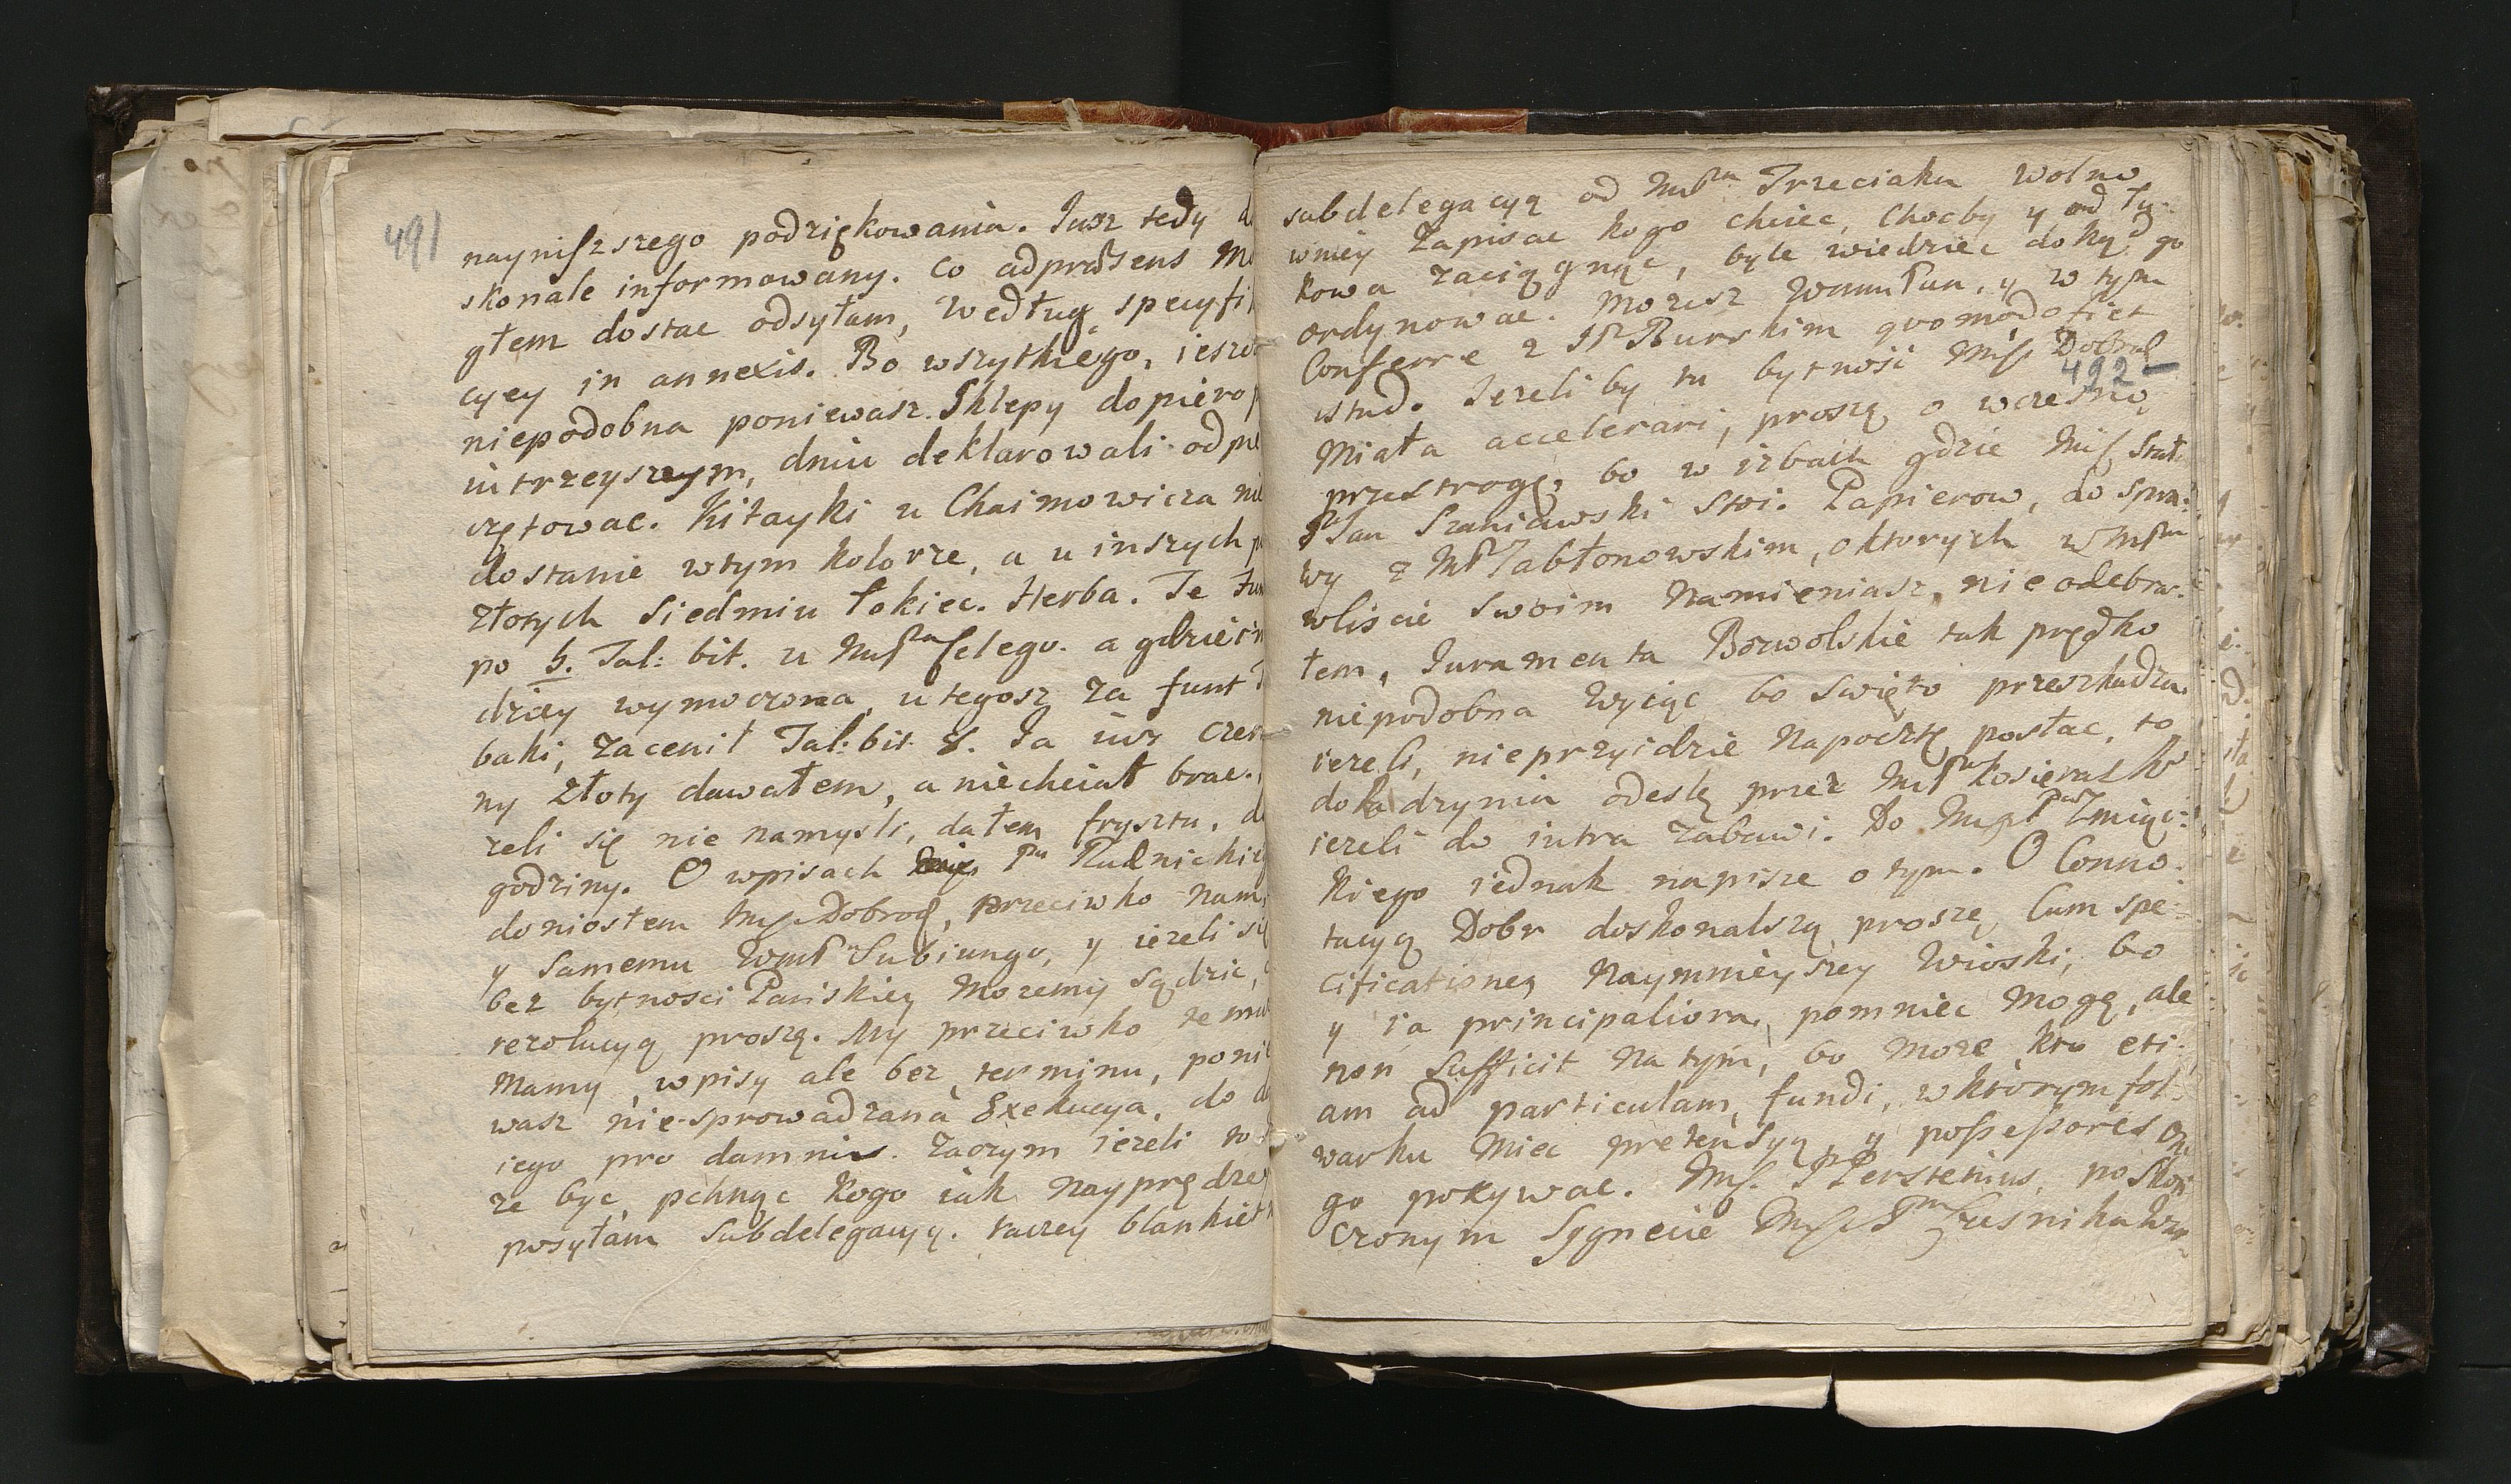 491
nayniższego podziękowania. Iusz tedy d
skonale informowany. Co adpraesens M
głem dostac odsyłam, według specyfi
cyey in annexis. Bo wszytkiego, ieszc
niepodobna poniewasz Sklepy dopiero
iutrzeyszym, dniu deklarowali odpie
czętowac. Kitayki u Chaimowicza nie
dostanie wtym kolorze, a u inszych p
złotych siedmiu łokiec. Herba. Te
po 5. Tal: bit. u a gdzie
dziey wymoczona, utegosz za funt
baki, zacenił Tal: bit. 8. Ia iusz czer
ny złoty dawałem, a niechciał brac.
zeli się nie namysli, dałem frysztu, d
godziny. O wpisach Pn Rudnickie
doniosłem Dobrod, przeciwko nam,
y samemu Subiungo, y iezeli się
bez bytnosci Panskiey mozemy sądzic,
rezolucyą proszą. My przeciwko temu
mamy wpisy ale bez terminu, ponie
wasz nie sprowadzana Exekucya, do d
iego pro damnis. Zaczym iezeli to
ze byc, pchnąc kogo iak nayprędzey
posyłam Subdelegacyą. raczey blankiet
subdelegacyą od Trzeciaka wolno
wniey zapisac kogo chciec, Chocby y od Ty-
kowa zaciągnąc, byle wiedziec dokąd go
ordynowac. Mozesz y w tym
Conferre z JP Burskim quomodo fiet
istud. Iezeliby ta bytnosc Dobrod
492
Miała accelerari, proszę o wczesną
przestrogę, bo w izbach gdzie
Jan Szaniawski stoi. Papierow, do spra-
wy z Jabłonowskim, o ktorych
wliscie swoim Namieniasz, nie odebra-
łem, Iuramenta Borwolskie tak prędko
niepodobna wyiąc bo swięto przeszkadza
iezeli, nieprzyidzie Napocztę posłac, to
doKadzynia odeslę przez
iezeli do iutra zabawi. Do
kiego iednak napisze o tym. O Conno-
tacyą Dobr doskonalszą proszę Cum spe-
cificatione, Naymnieyszey Wioski, bo
y ia principaliora, pomniec mogę, ale
non sufficit na tym, bo moze kto eti-
am ad particulam, fundi, w ktorym fol-
warku miec pretensyą, y possessores
go pozywac. Perstenius, po skoń
czonym Sygnecie